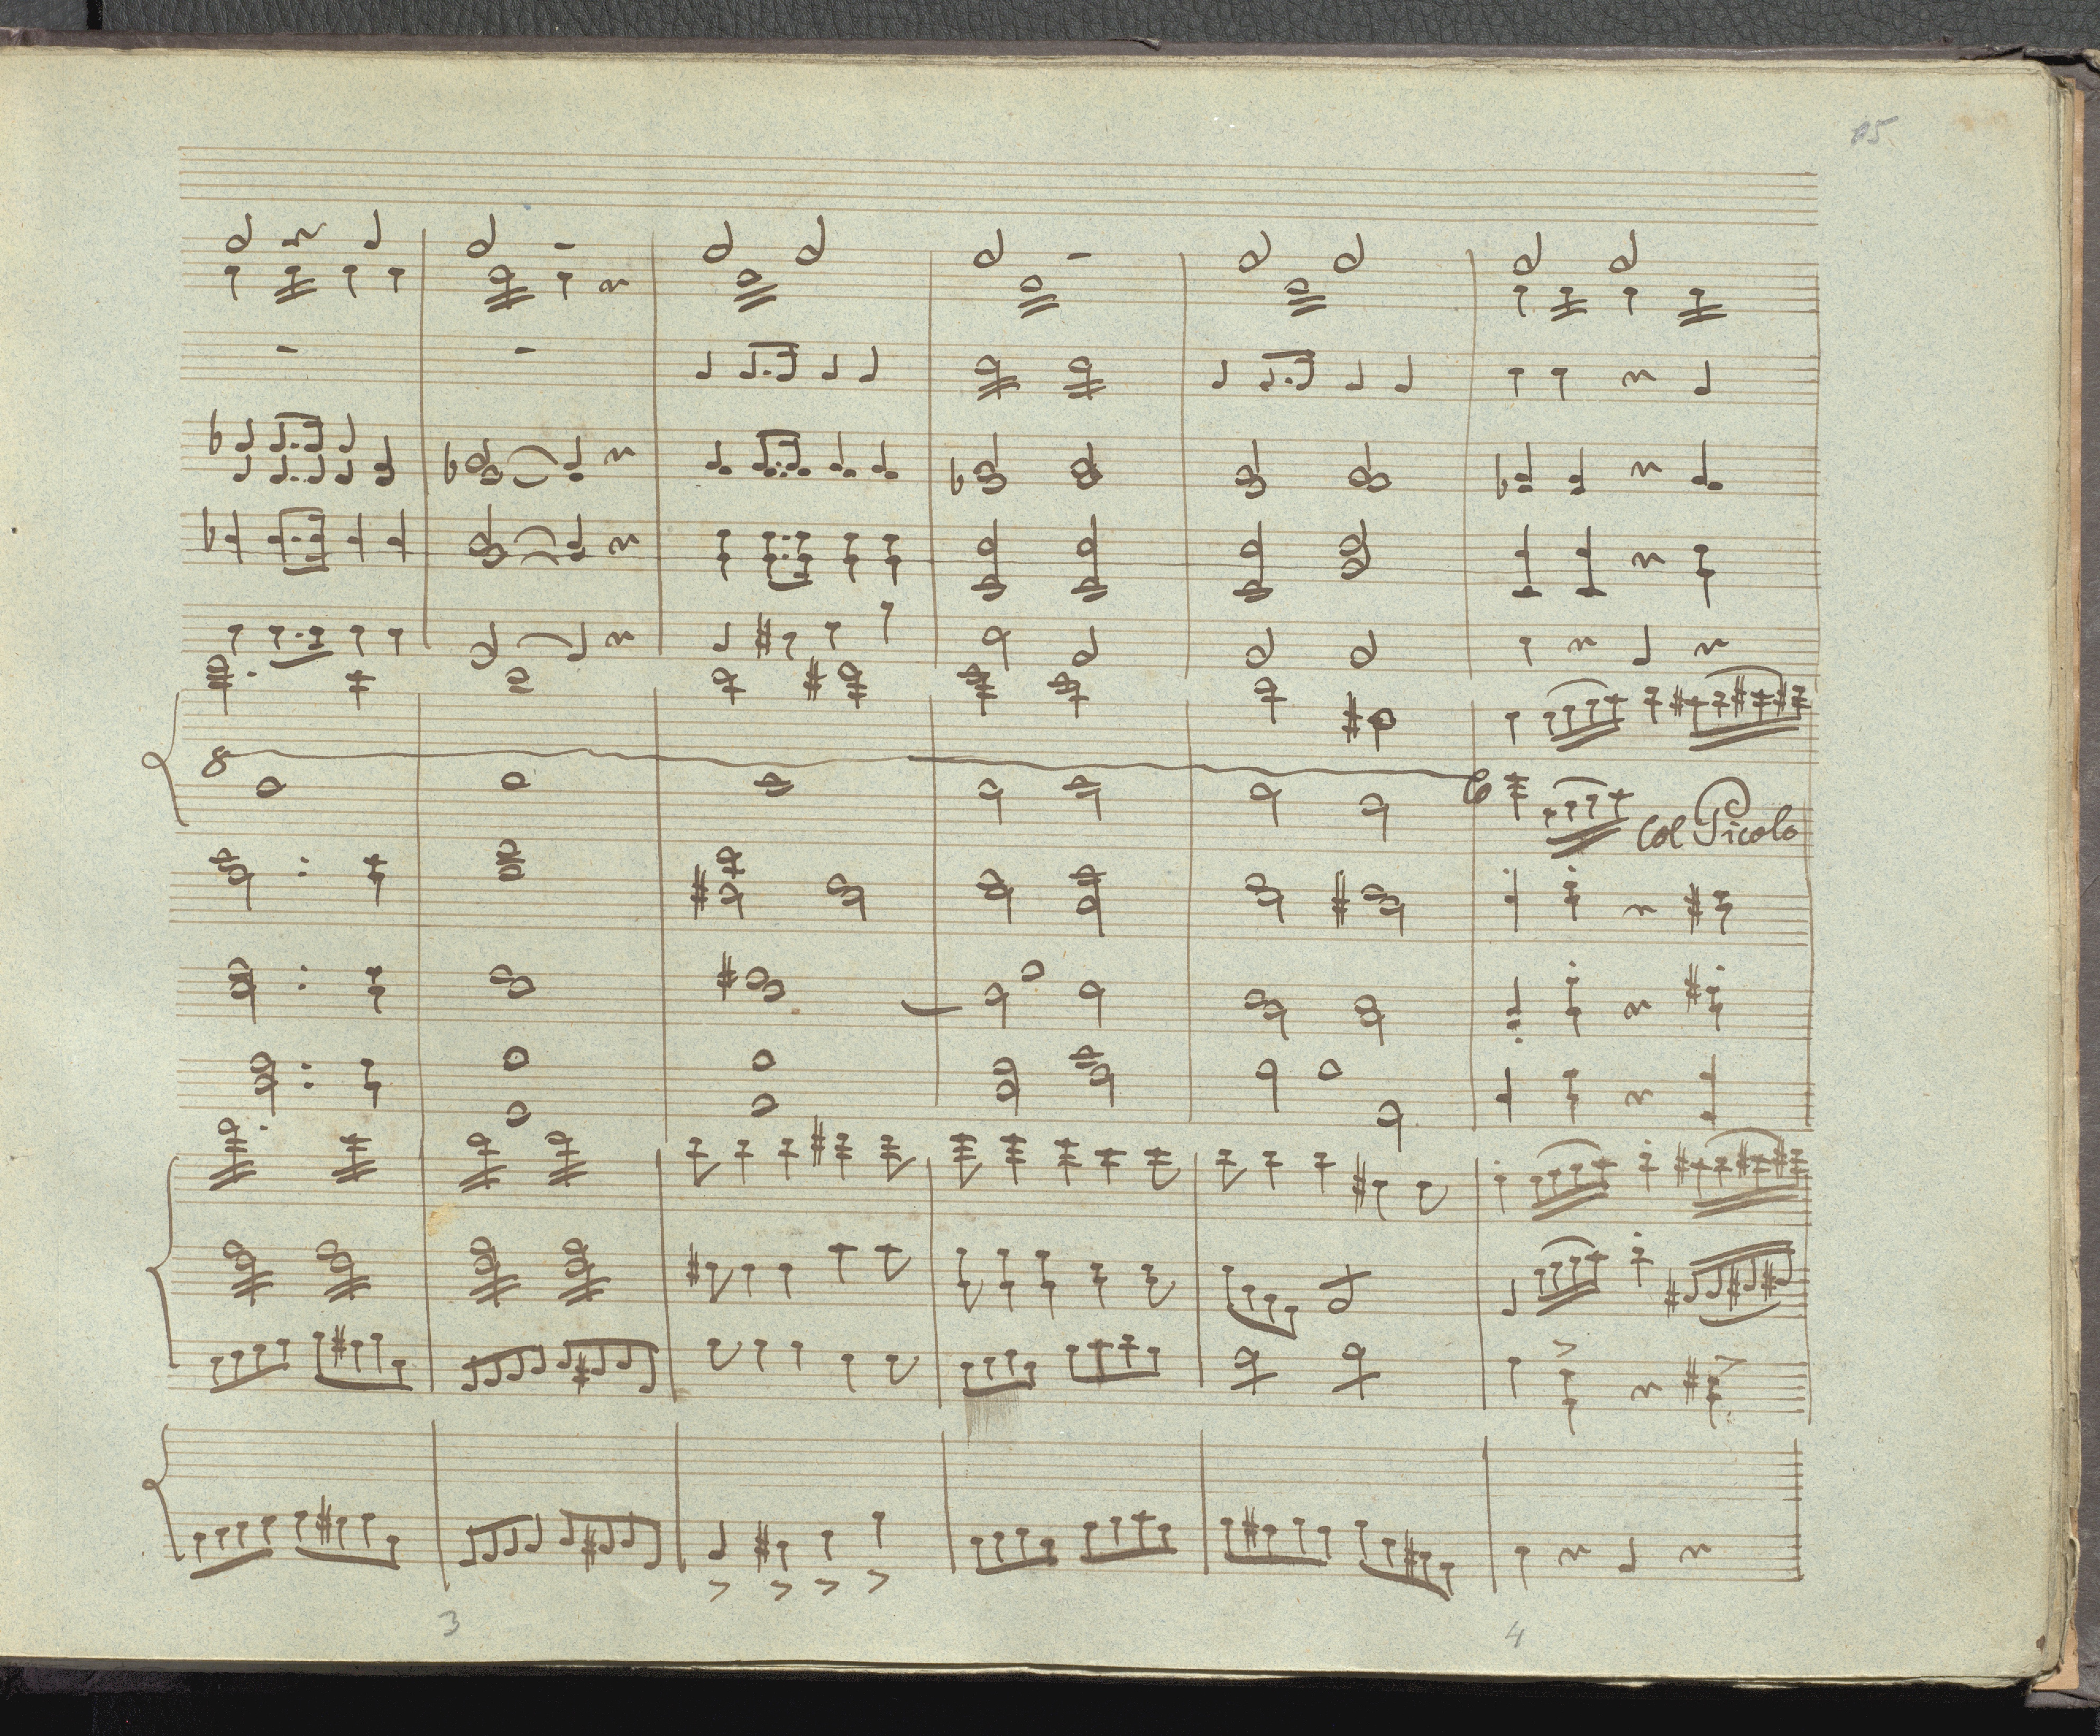 8
Col Picolo
3
4